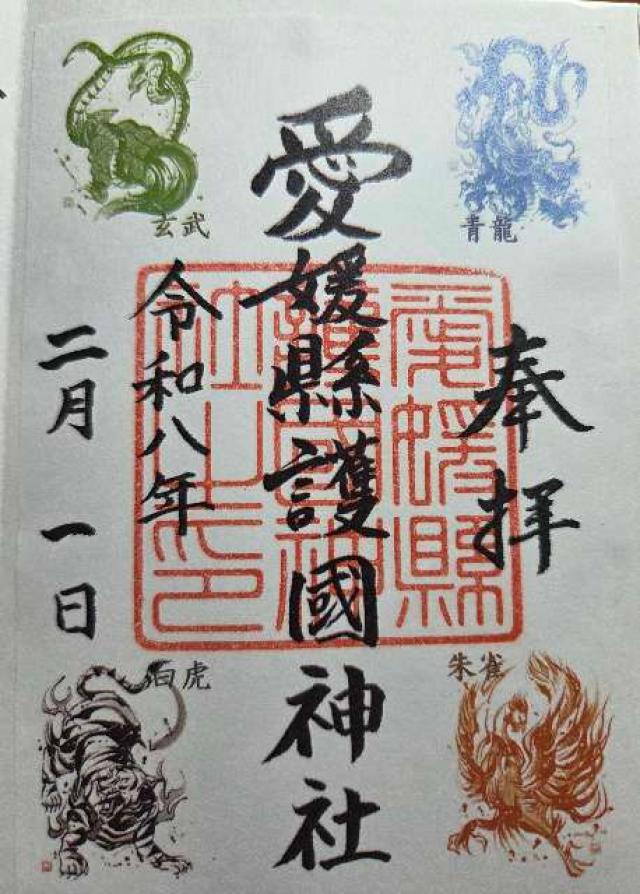 青龍
玄武
奉拝
愛媛縣護國神社
愛媛縣
護國神
社之印
令和八年
二月一日
朱雀
白虎